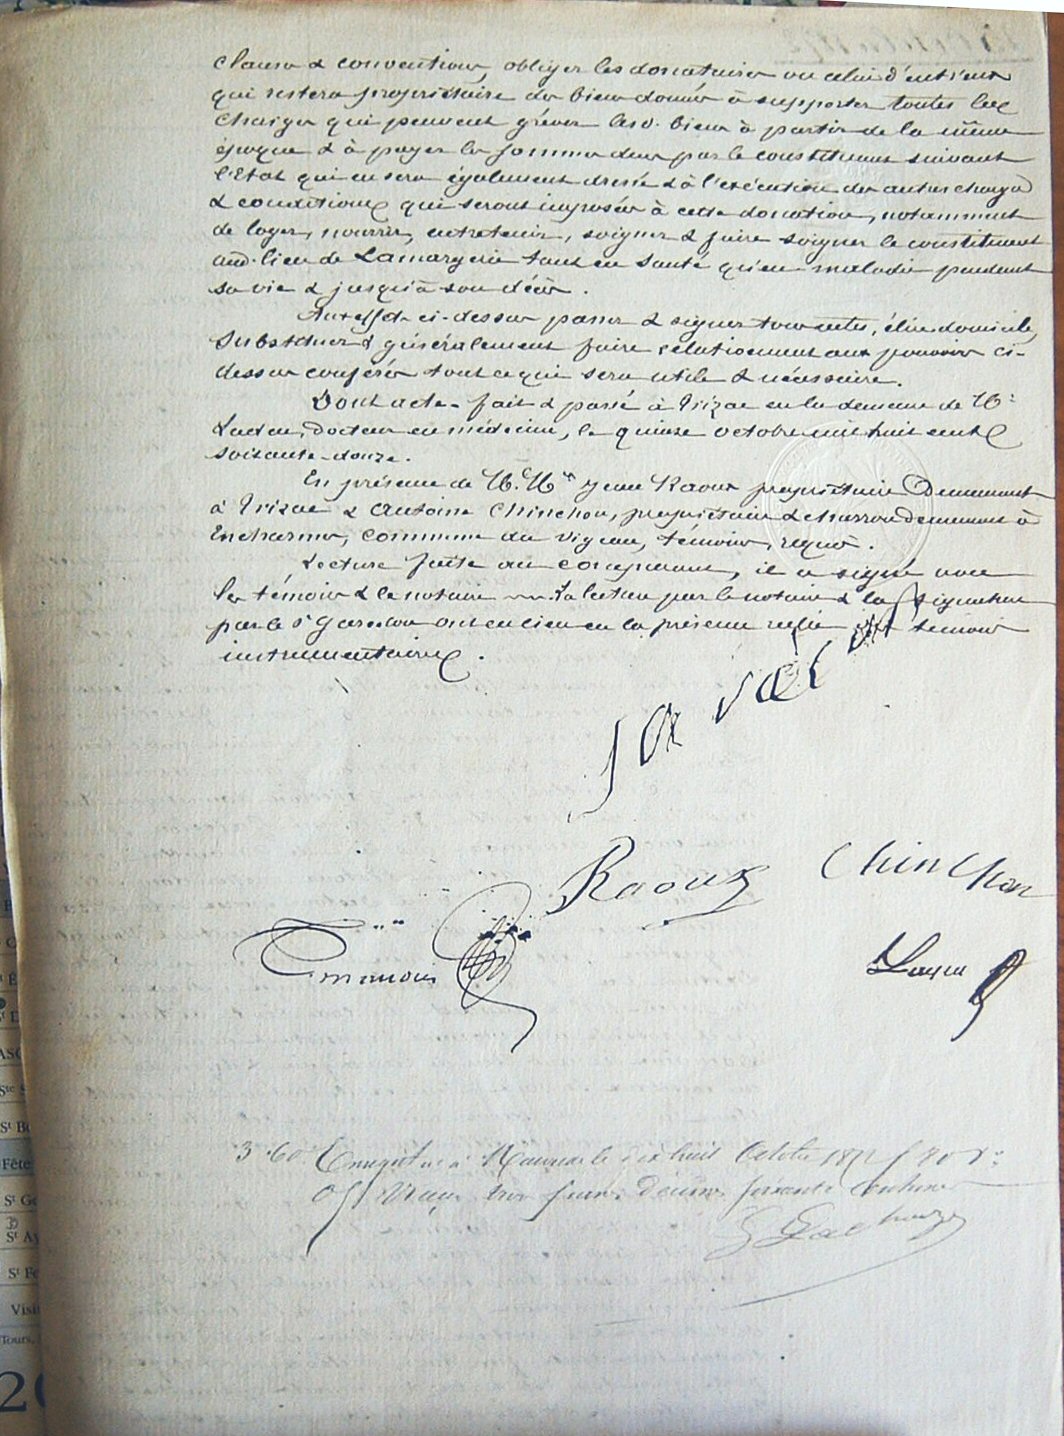 clauses & conventions, obliger les donataires ou celui d'entr'eux
qui restera propriétaire des biens donnés à supporter toutes les
charges qui peuvent gréver lesd. biens à partir de la même
époque & à payer les sommes dues par le constituant suivant
l'Etat qui en sera également dressé & à l'exécution des autres charges
& conditions qui seront imposées à cette donation, notamment
de loger, nourrir, entretenir, soigner & faire soigner le constituant
aud. lieu de Lamargerie tant en santé qu'en maladie pendant
sa vie & jusqu'à son décès.
Aux effets ci-dessus passer & signer tous actes, élire domicile,
substituer & généralement faire relativement aux pouvoirs ci-
dessus conférés tout ce qui sera utile & nécessaire.
Dont acte - fait & passé à Trizac en la demeure de M.
docteur en médecine, le quinze octobre mil huit cent
soixante-douze.
En présence de M. Mrs Jean Raoux propriétaire demeurant
à Trizac & Antoine Chinchon, propriétaire & charron demeurant à
Encharmes, commune du Vigean, témoins requis.
Lecture faite au comparant, il a signé avec
les témoins & le notaire La lecture par le notaire & la signature
par le Sr ont eu lieu en la présence réelle des témoins
instrumentaires.
Raoux
Chinchon
3.60 Enregistré à Mauriac le dix huit Octobre 1872 f 80 Vo
Reçu trois francs décimes soixante centimes